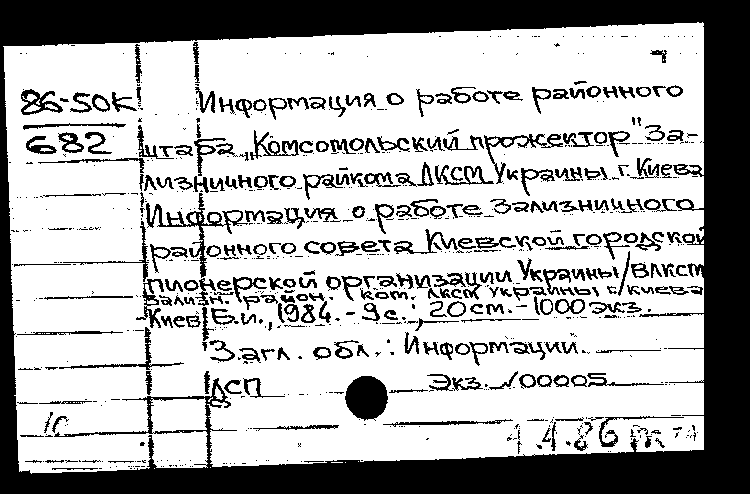 86-50К
682
Информация о работе районного
штаба „Комсомольский прожектор" За-
лизничного райкома ЛКСМ Украины г. Киева
Информация о работе Зализничного
районного совета Киевской городской
пионерской организации Украины/ВЛКСМ
Зализн. район. ком. ЛКСМ Украины г. Киева
Киев, Б.и., 1984.-9с.; 20см.-1000экз.
Загл. обл.: Информации.
ДСП Экз. №00005.
4.4.86